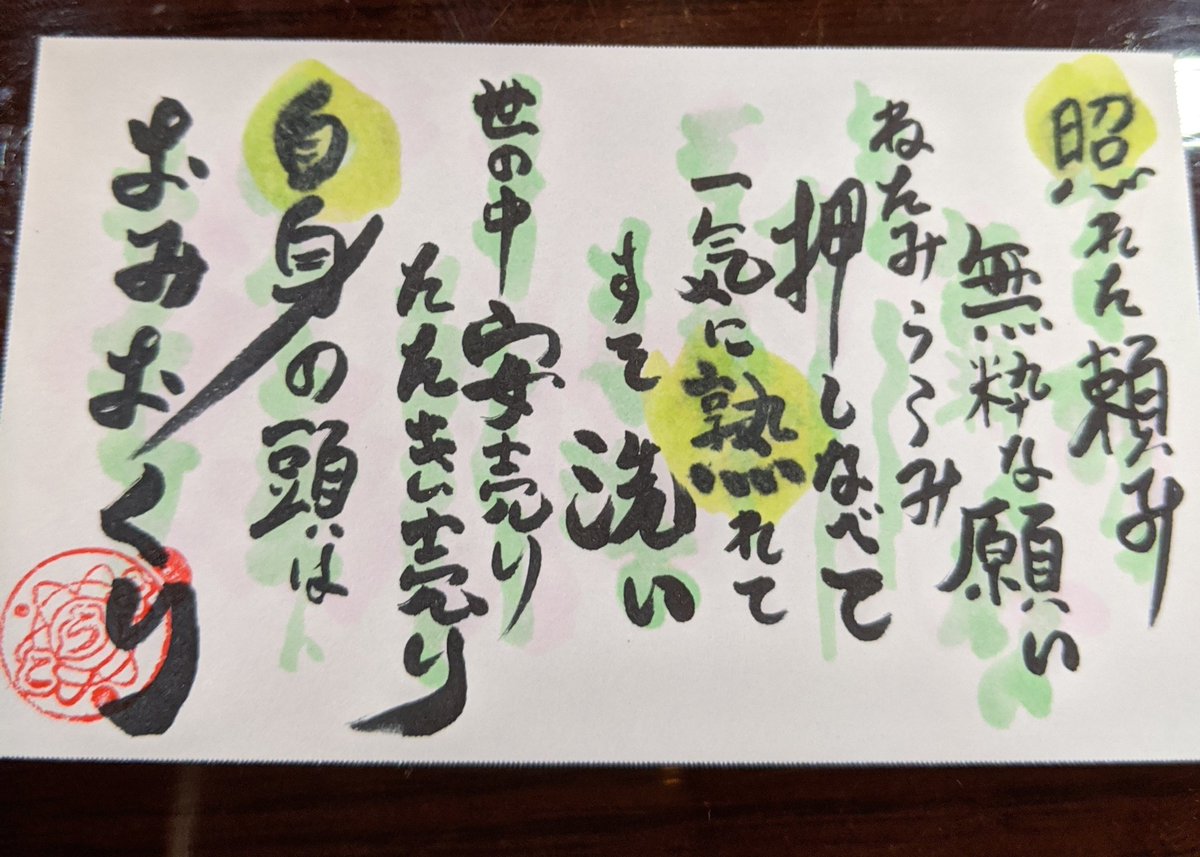 照れた頼み
無粋な願い
ねたみうらみ
押しなべて
一気に熟れて
すて洗い
世の中安売り
たたき売り
自身の頭は
おみおくり